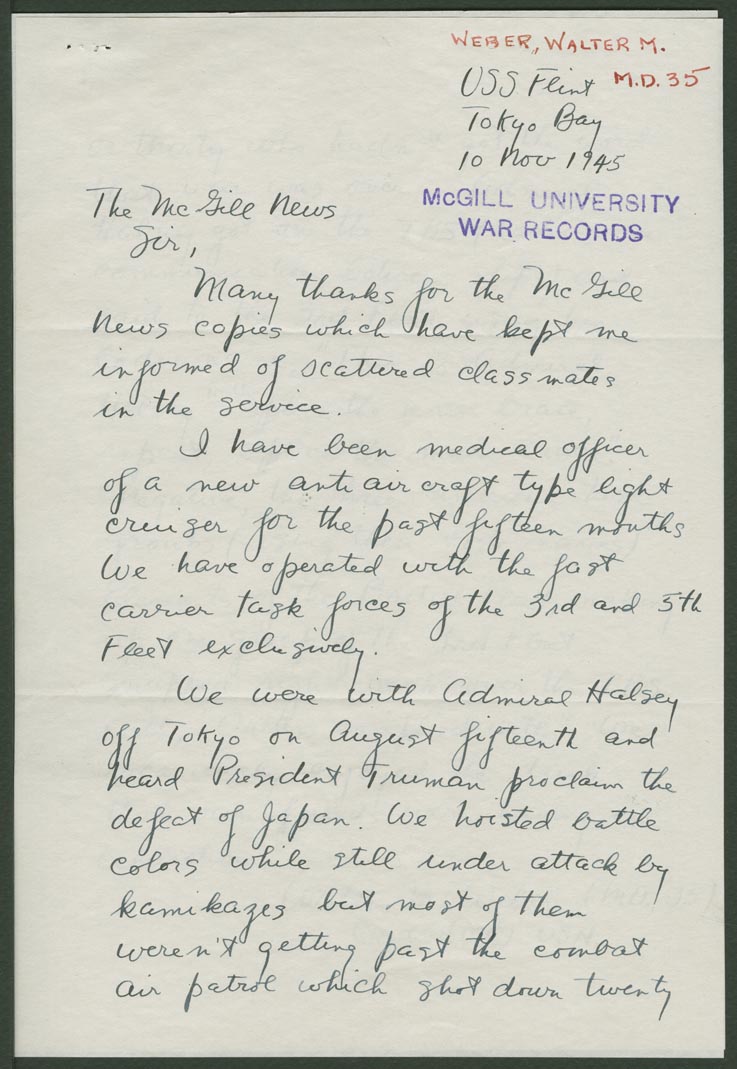 WEBER, WALTER M.
M.D. 35
USS Flint
Tokyo Bay
10 Nov 1945
McGILL UNIVERSITY
WAR RECORDS
The McGill News
Sir,
Many thanks for the McGill
News copies which have kept me
informed of scattered classmates
in the service.
I have been medical officer
of a new anti aircraft type light
cruiser for the past fifteen months
We have operated with the fast
carrier task forces of the 3rd and 5th
Fleet exclusively.
We were with Admiral Halsey
off Tokyo on August fifteenth and
heard President Truman proclaim the
defeat of Japan. We hoisted battle
colors while still under attack by
kamikazes but most of them
weren't getting past the combat
air patrol which shot down twenty